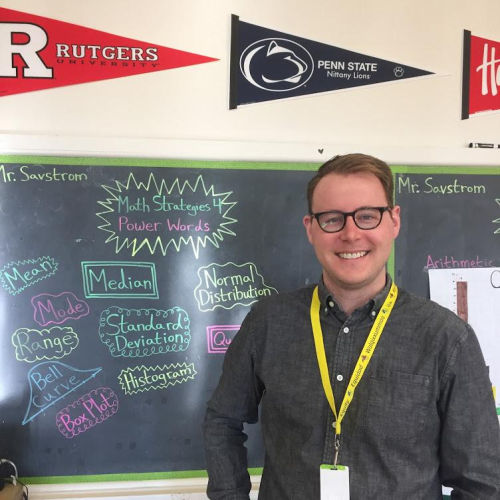 R RUTGERS
UNIVERSITY
PENN STATE
Nittany Lions
Mr. Savstrom
Math Strategies 4
Power Words
Mean
Median
Normal
Distribution
Mode
Standard
Deviation
Range
Bell
Curve
Histogram
Box Plot
Mr. Savstrom
Arithmetic